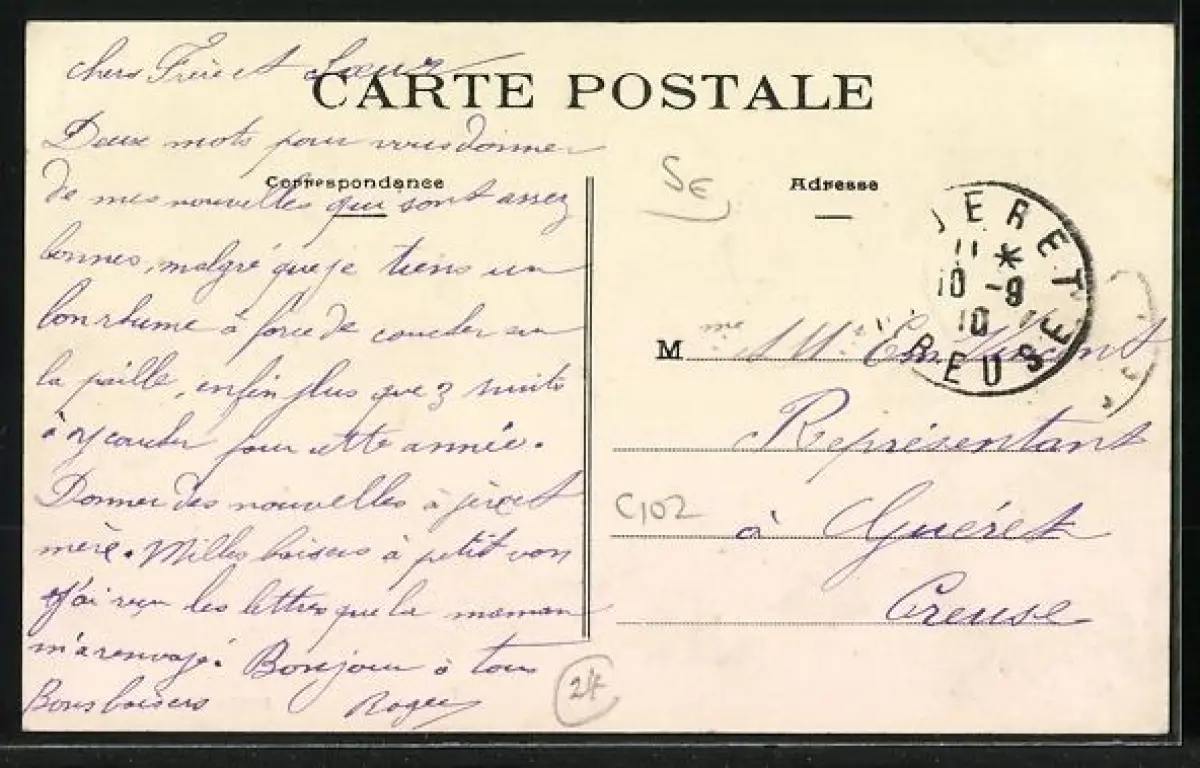 chers Frère et Soeur
CARTE POSTALE
Deux mots pour vous donner
Correspondance
de mes nouvelles qui sont assez
bonnes, malgré que je tiens un
bon rhume à force de coucher sur
la paille, enfin plus que 3 nuits
à y coucher pour cette année.
Donner des nouvelles à père et
mère. Milles baisers à petit
J'ai reçu les lettres que la maman
m'a renvoyé. Bonjour à tous
Bons baisers Roger
24
SE
Adresse
ERET
11 *
10 -9
10
REUSE
M me Em. Vincent
Représentant
C102
à Guéret
Creuse